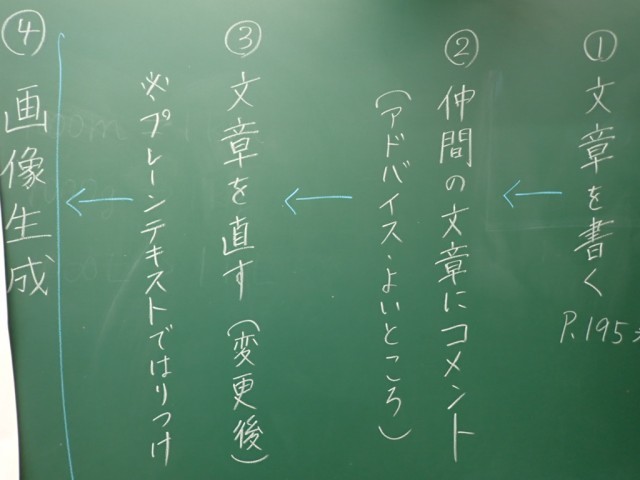 ①文章を書く
P.195
②仲間の文章にコメント
(アドバイス・よいところ)
③文章を直す(変更後)
※プレーンテキストではりつけ
④画像生成